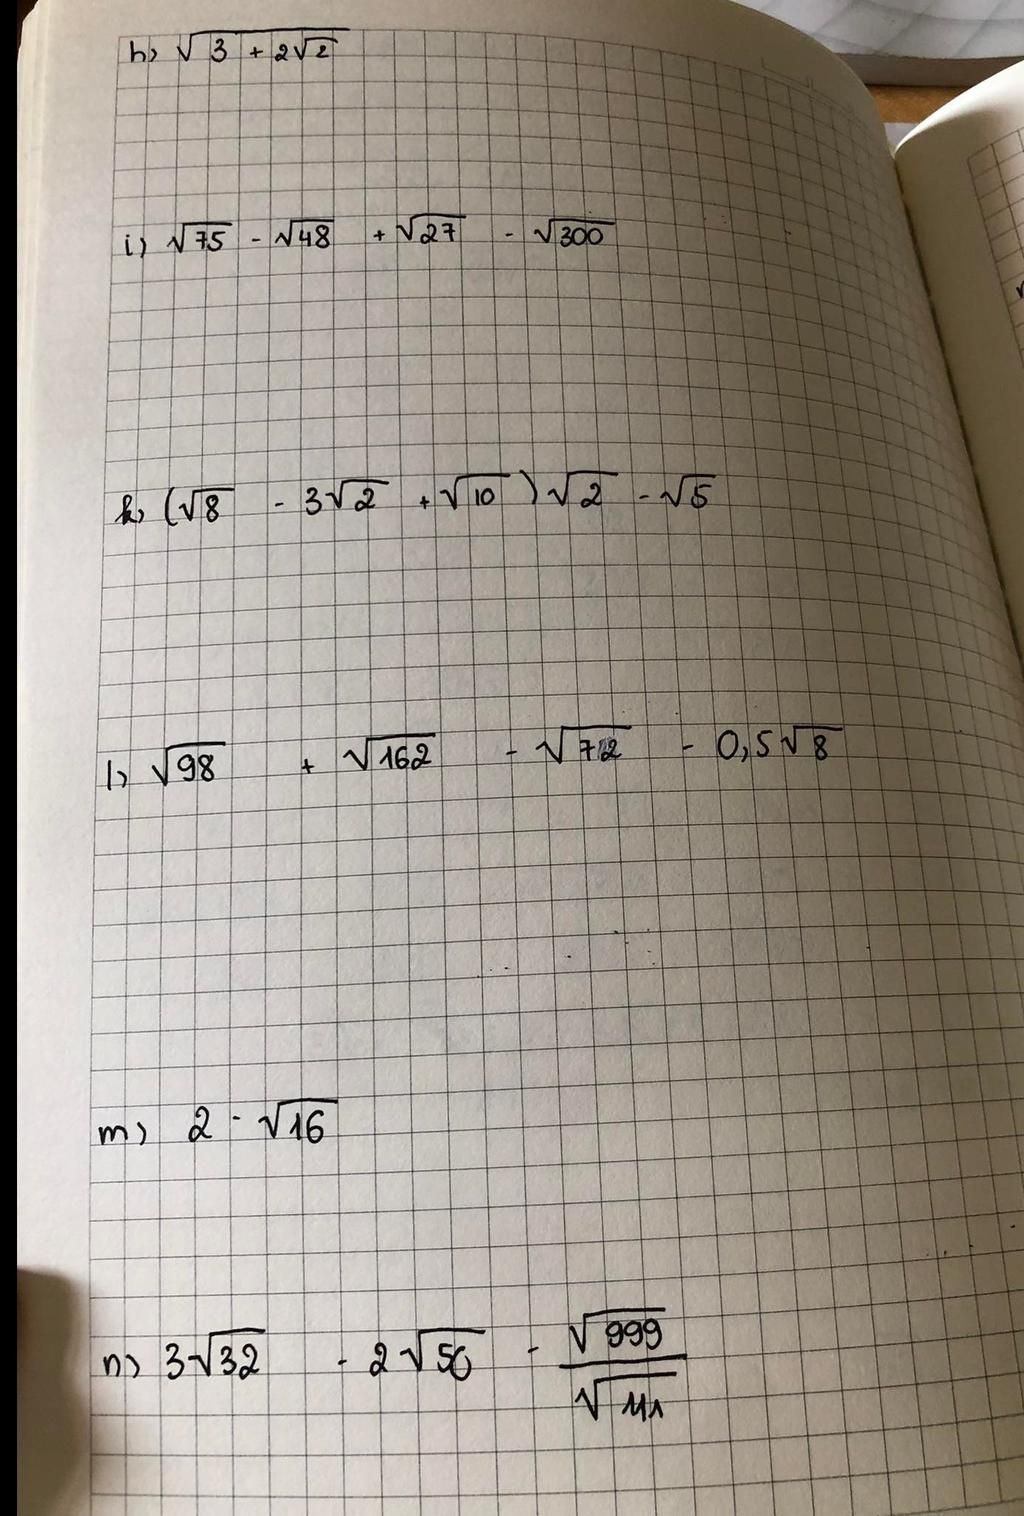 h) √(3 + 2√2)
i) √75 - √48 + √27 - √300
k) (√8 - 3√2 + √10)√2 - √5
l) √98 + √162 - √72 - 0,5√8
m) 2 - √16
n) 3√32 - 2√50 - √999/√111